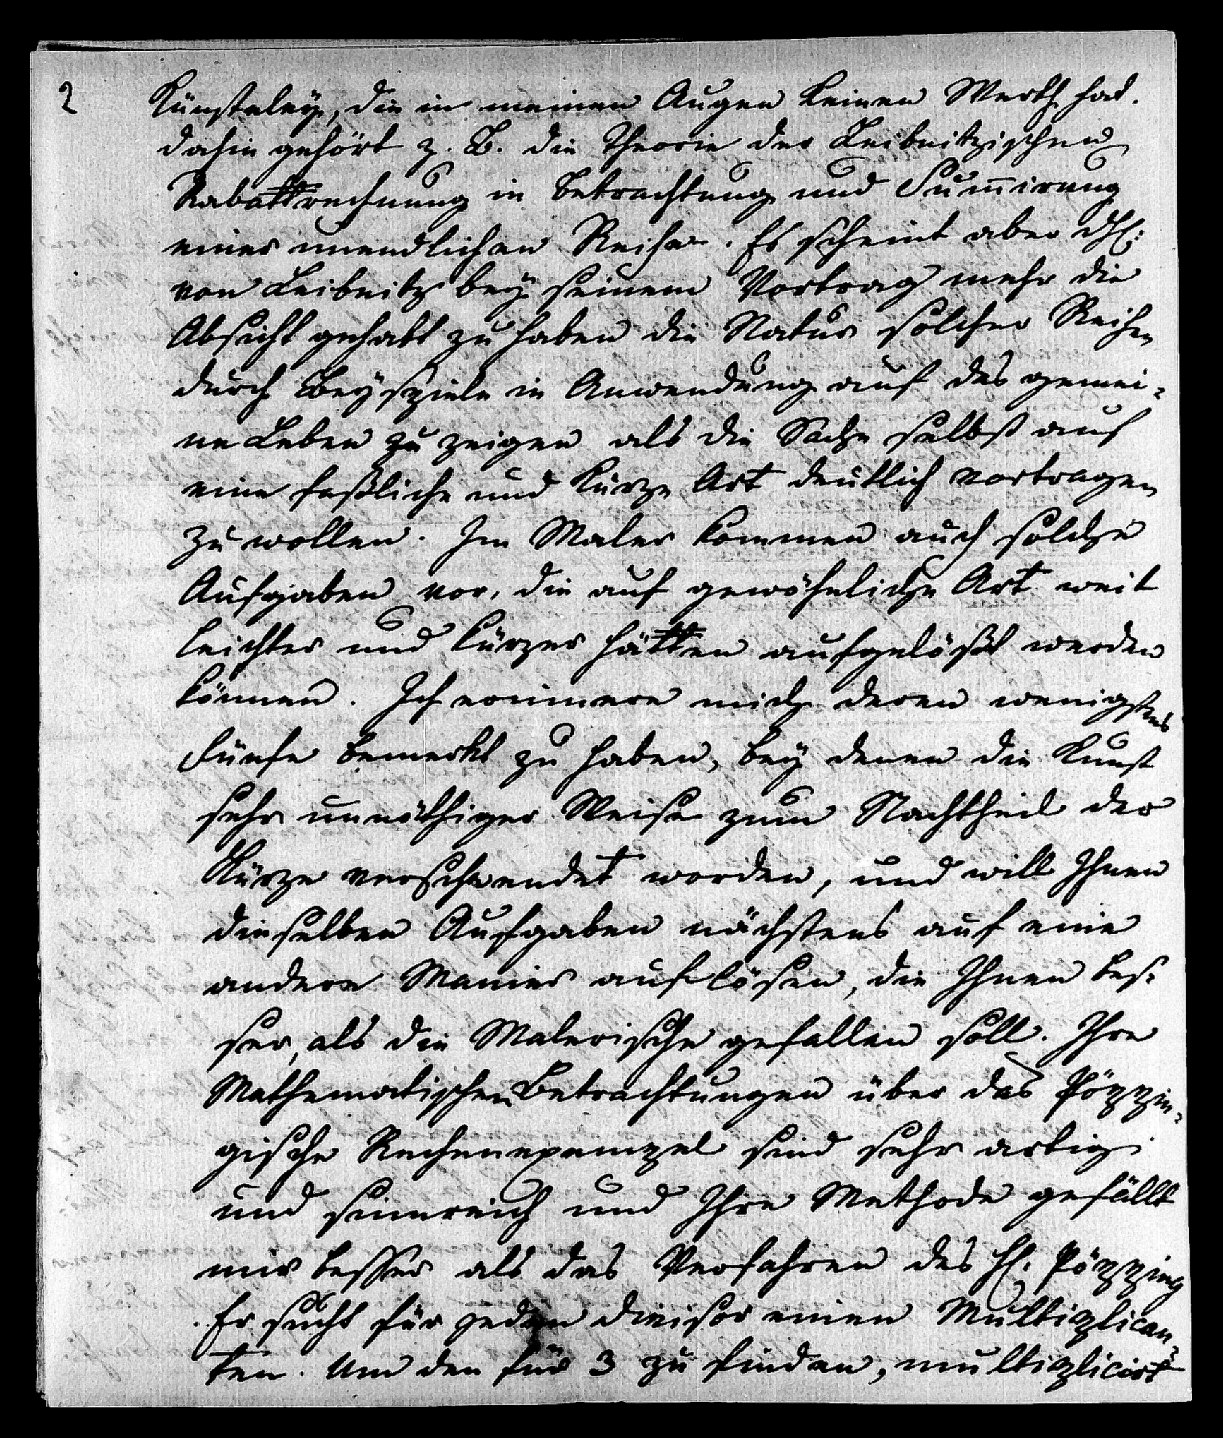 2
Künsteley, die in meinen Augen keinen Werth hat.
dahin gehört z. B. die Theorie der Leibnitzischen
Rabattrechnung in Betrachtung und Sum̅irung
einer unendlichen Reihe. Es scheint aber dH:
von Leibnitz bey seinem Vortrag mehr die
Absicht gehabt zu haben die Natur solcher Reihen
durch Beyspiele in Anwendung auf das gemei-
ne Leben zu zeigen als die Sache selbst auf
eine faßliche und kurze Art deutlich vortragen
zu wollen. Im Maler kommen auch solche
Aufgaben vor, die auf gewöhnliche Art weit
leichter und kürzer hätten aufgelößt werden
können. Ich erinnere mich deren wenigstens
fünfe bemerkt zu haben, bey denen die Kunst
sehr unnöthiger Weise zum Nachtheil der
Kürze verschwendet worden, und will Ihnen
dieselben Aufgaben nächstens auf eine
andere Manier auflösen, die Ihnen bes-
ser, als die Malerische gefallen soll. Ihre
Mathematischen Betrachtungen über das Pözzin-
gische Rechenexempel sind sehr artig
und sinnreich und Ihre Methode gefällt
mir besser als das Verfahren des H. Pözzing
Er sucht für jeden divisor einen Multiplican-
ten. Um den für 3 zu finden, multiplicirt